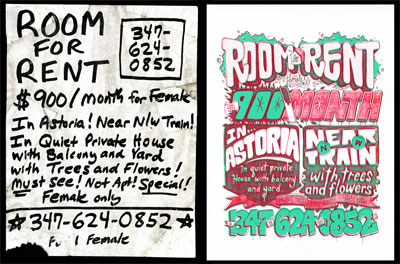 ROOM
FOR
RENT
347-
624-
0852
$900/month for Female
In Astoria! Near N/W Train!
In Quiet Private House
with Balcony and Yard
with Trees and Flowers!
Must See! Not Apt! Special!
Female only
☆ 347-624-0852 ☆
1 Female
ROOM FOR RENT
900 MONTH
IN...
ASTORIA
In quiet private
House with balcony
and yard
NEAR
N W
TRAIN
with trees
and flowers
347-624-0852